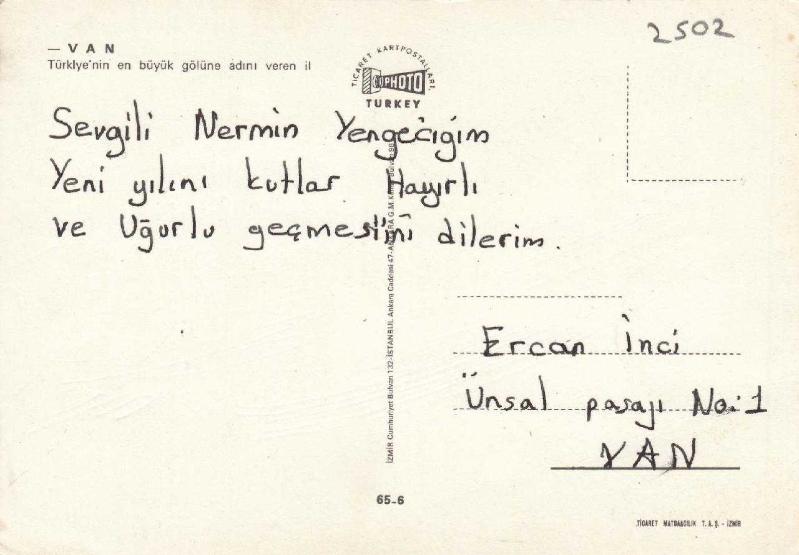 2502
— VAN
Türkiye'nin en büyük gölüne adını veren il
TİCARET KARTPOSTALLARI,
COPHOTO
TURKEY
Sevgili Nermin Yengeciğim
Yeni yılını kutlar Hayırlı
ve Uğurlu geçmesini dilerim.
İZMİR Cumhuriyet Bulvarı 132-İSTANBUL Ankara Caddesi 47-ANKARA G.M.K.
Ercan İnci
Ünsal pasajı No:1
VAN
65-6
TİCARET MATBAACILIK T.A.Ş. - İZMİR